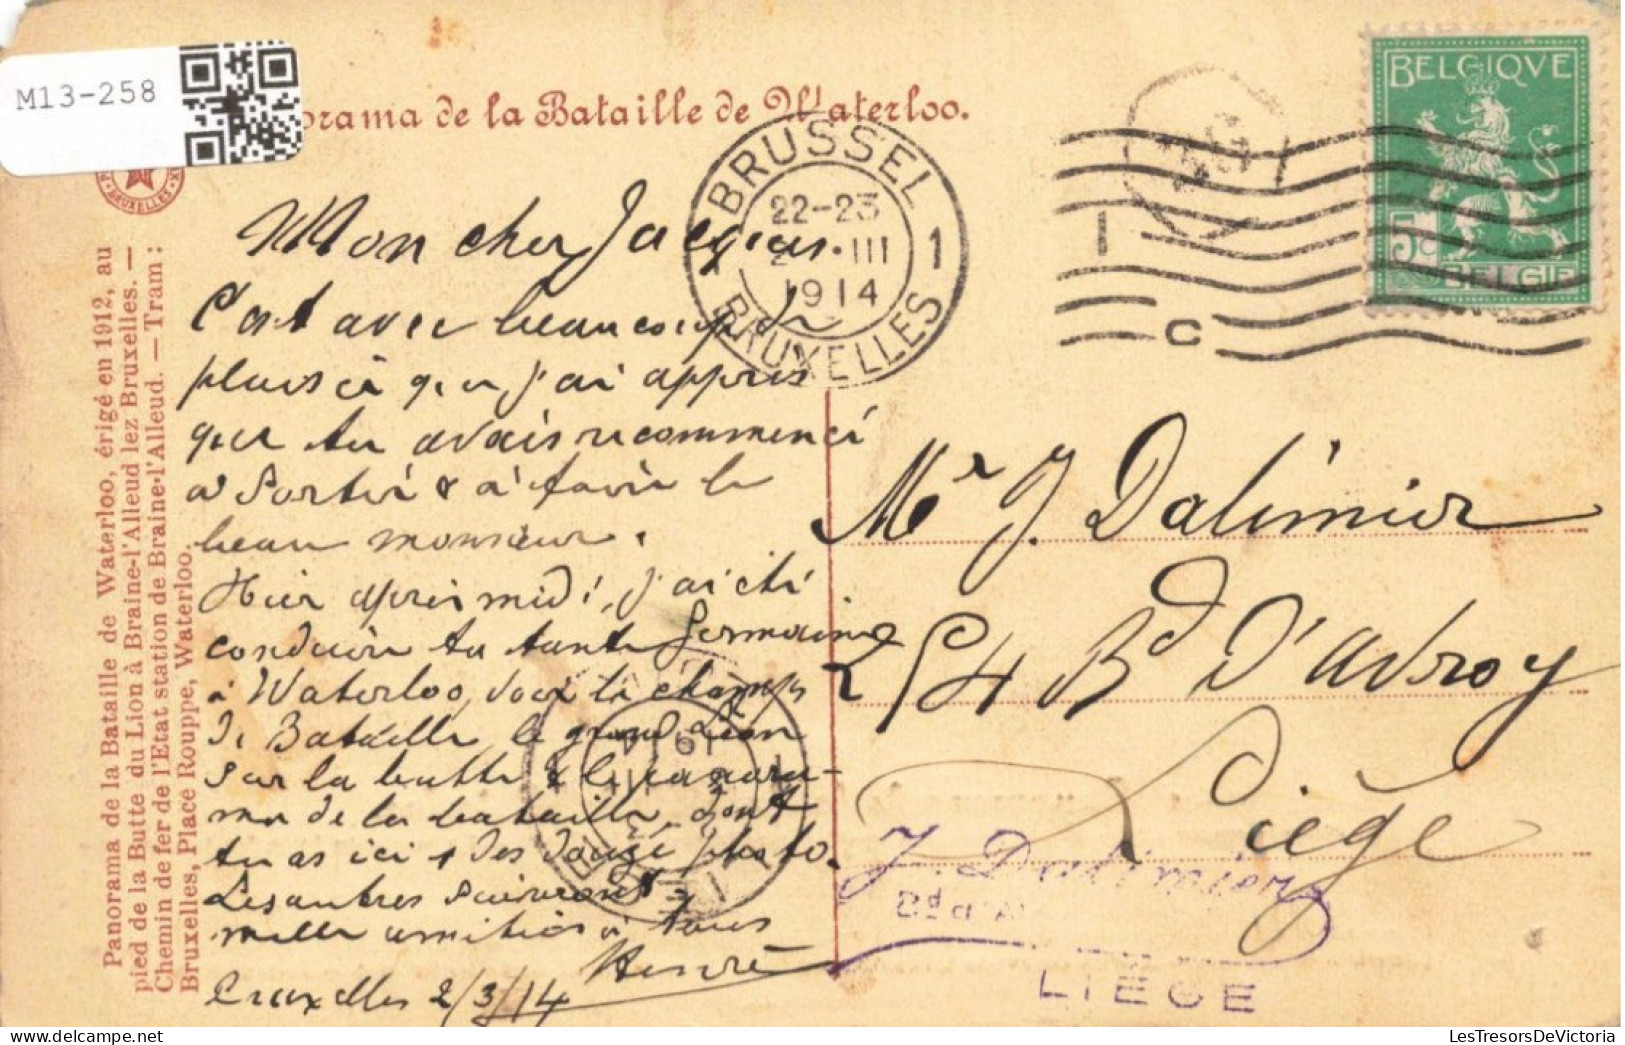 M13-258
orama de la Bataille de Waterloo.
BRUXELLES
Panorama de la Bataille de Waterloo, érigé en 1912, au
pied de la Butte du Lion à Braine-l'Alleud lez Bruxelles. —
Chemin de fer de l'Etat station de Braine-l'Alleud. — Tram :
Bruxelles, Place Rouppe, Waterloo.
BRUSSEL
22-23
2 III
1914
1 1
BRUXELLES
1 C
BELGIQVE
5c
BELGIE
Mon cher Jacques.
C'est avec beaucoup de
plaisir que j'ai appris
que tu avais recommencé
à sortir & à faire le
beau monsieur.
Hier après midi, j'ai été
conduire ta tante Germaine
à Waterloo, voir le champs
de Bataille, le grand Lion
sur la butte & le panora-
ma de la bataille, dont
tu as ici 1 des douze photo.
Les autres suivront
mille amitiés à tous
Henri
Bruxelles 2/3/14
Mr J. Dalimier
254 Bd D'Avroy
Liège
J. Dalimier
Bd d'A
LIÈGE
1914
LesTresorsDeVictoria